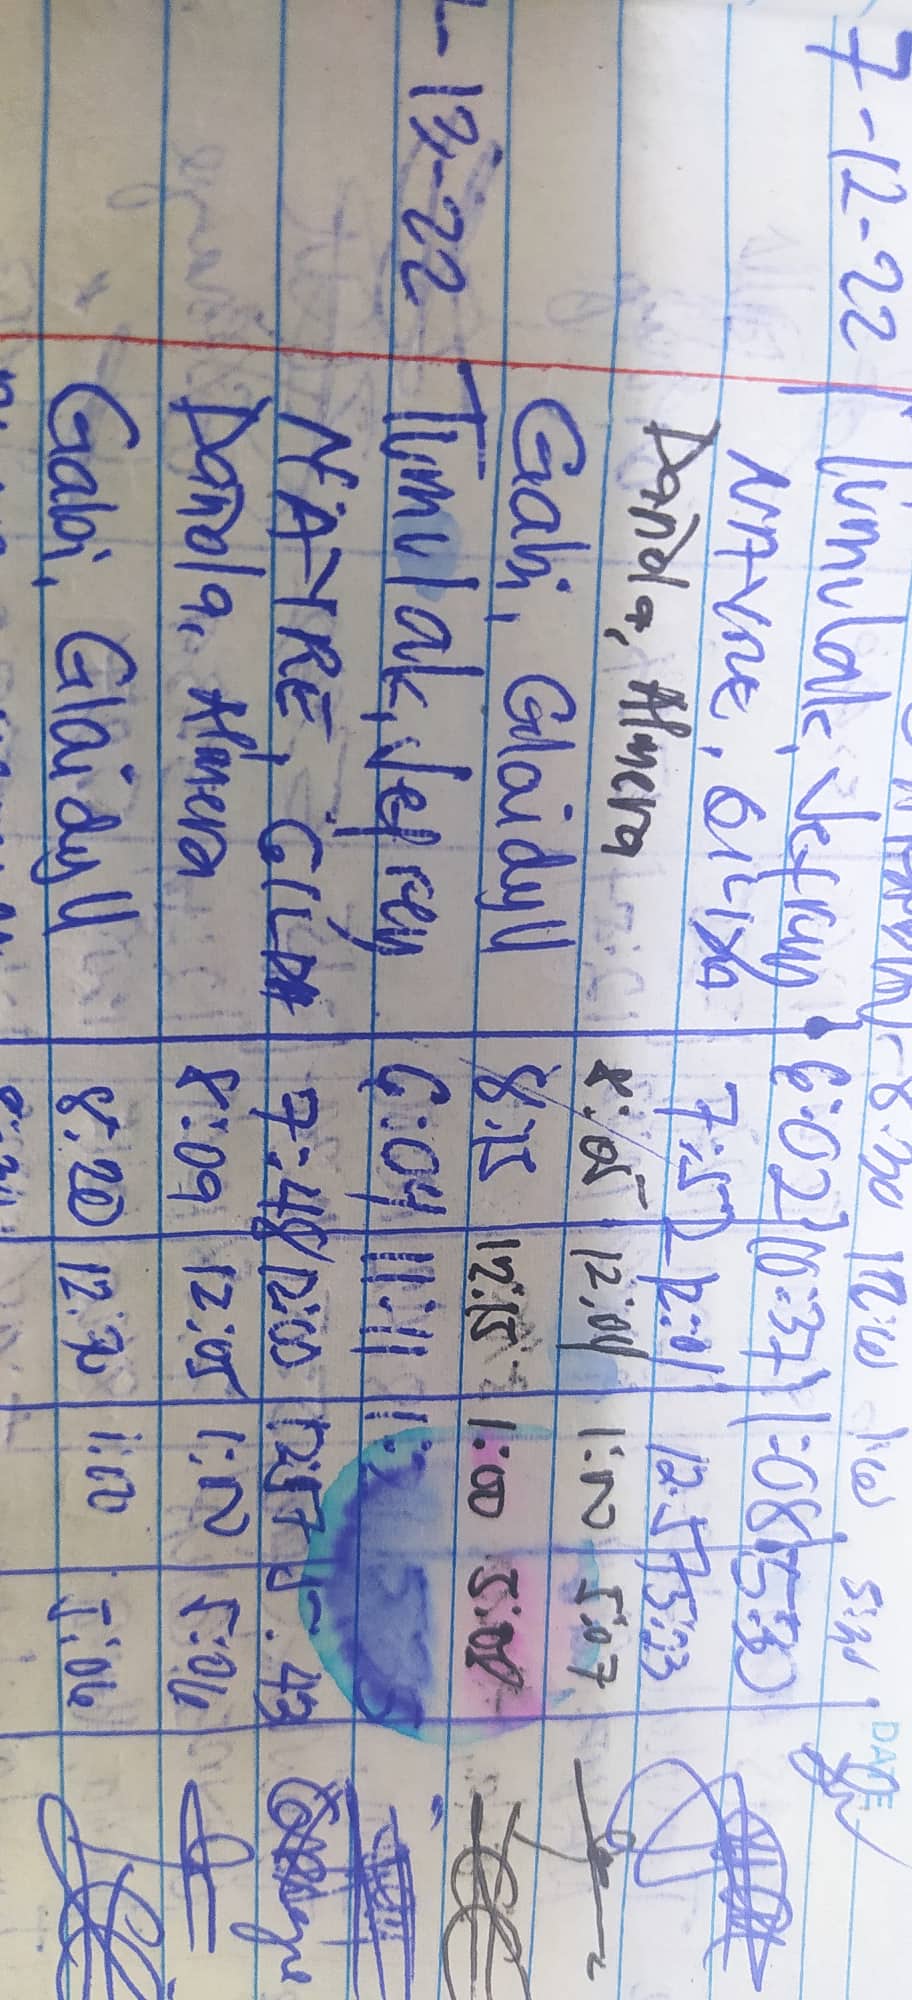 8:30 12:00 1:00 5:00
7-12-22 Tumulak, Jefrey 6:02 10:37 1:08 5:30
NAYRE, Gilda 7:52 12:01 12:57 5:23
Dañola, Almera 8:05 12:04 1:00 5:07
Gabi, Glaidyll 8:15 12:15 1:00 5:00
-13-22 Tumulak, Jefrey 6:04 11:11
NAYRE, GILDA 7:48 12:00 12:57 5:43
Dañola, Almera 8:09 12:05 1:00 5:06
Gabi, Glaidyll 8:20 12:20 1:00 5:06
DATE